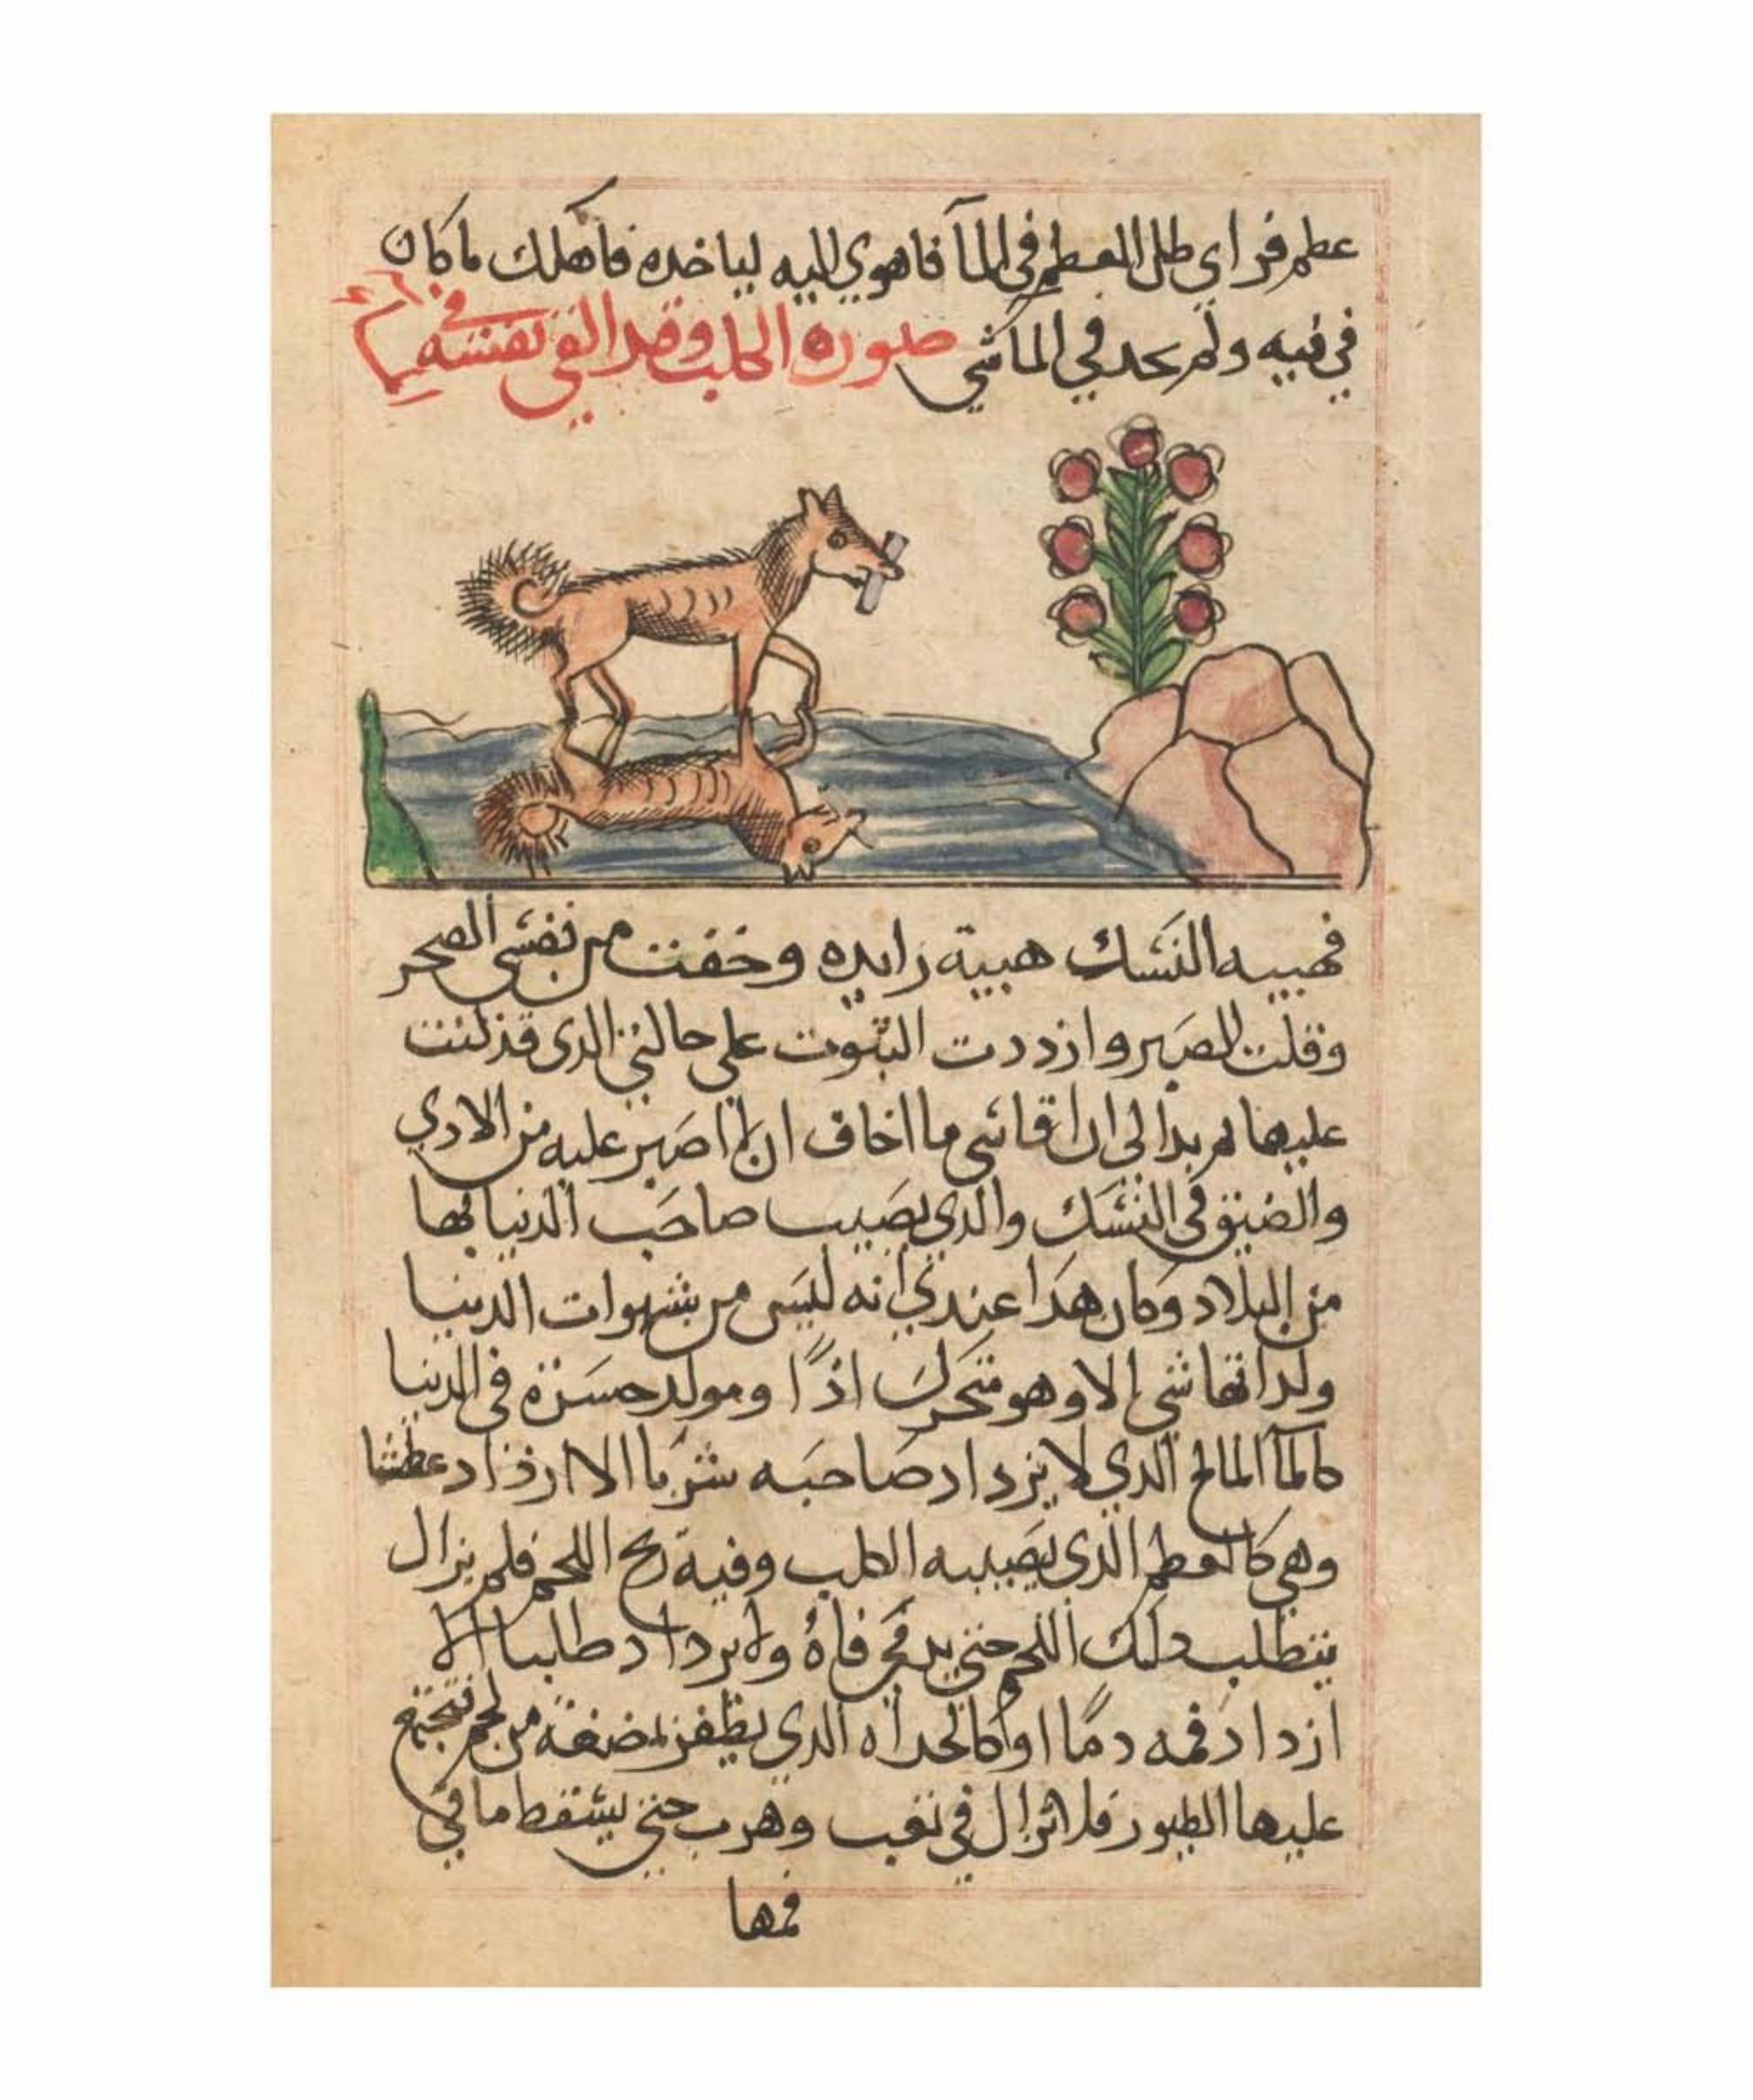 عطم فراي طل العطم في المآ فاهوي اليه لياخده فاهلك ماكان
في فيه ولم يجد في الما شي صوره الكلب وقد القي نفسه في المآ
فهيبه النسك هيبة زايده وخفت من نفسي الضجر
وقلت الصبر وازددت الثبوت علي حالتي الدي قد كنت
عليها ثم بدا لي ان اقاسي ما اخاف ان لا اصبر عليه من الادي
والضيق في النسك والدي يصيب صاحب الدنيا بها
من البلاد وكان هدا عندي انه ليس من شهوات الدنيا
ولداتها شي الا وهو متحرك ادًا ومولد حسرة في الدنيا
كالمآ المالح الدي لا يزداد صاحبه شربا الا ازداد عطشا
وهي كالعطم الدي يصيبه الكلب وفيه ريح اللحم فلم يزال
يتطلب دلك اللحم حتي يدمي فاهُ ولا يزداد طلبا الا
ازداد فمه دمًا او كالحداه الدي يظفر بمضغة من لحم فتجتمع
عليها الطيور فلا تزال في تعب وهرب حتي يسقط ما في
فمها